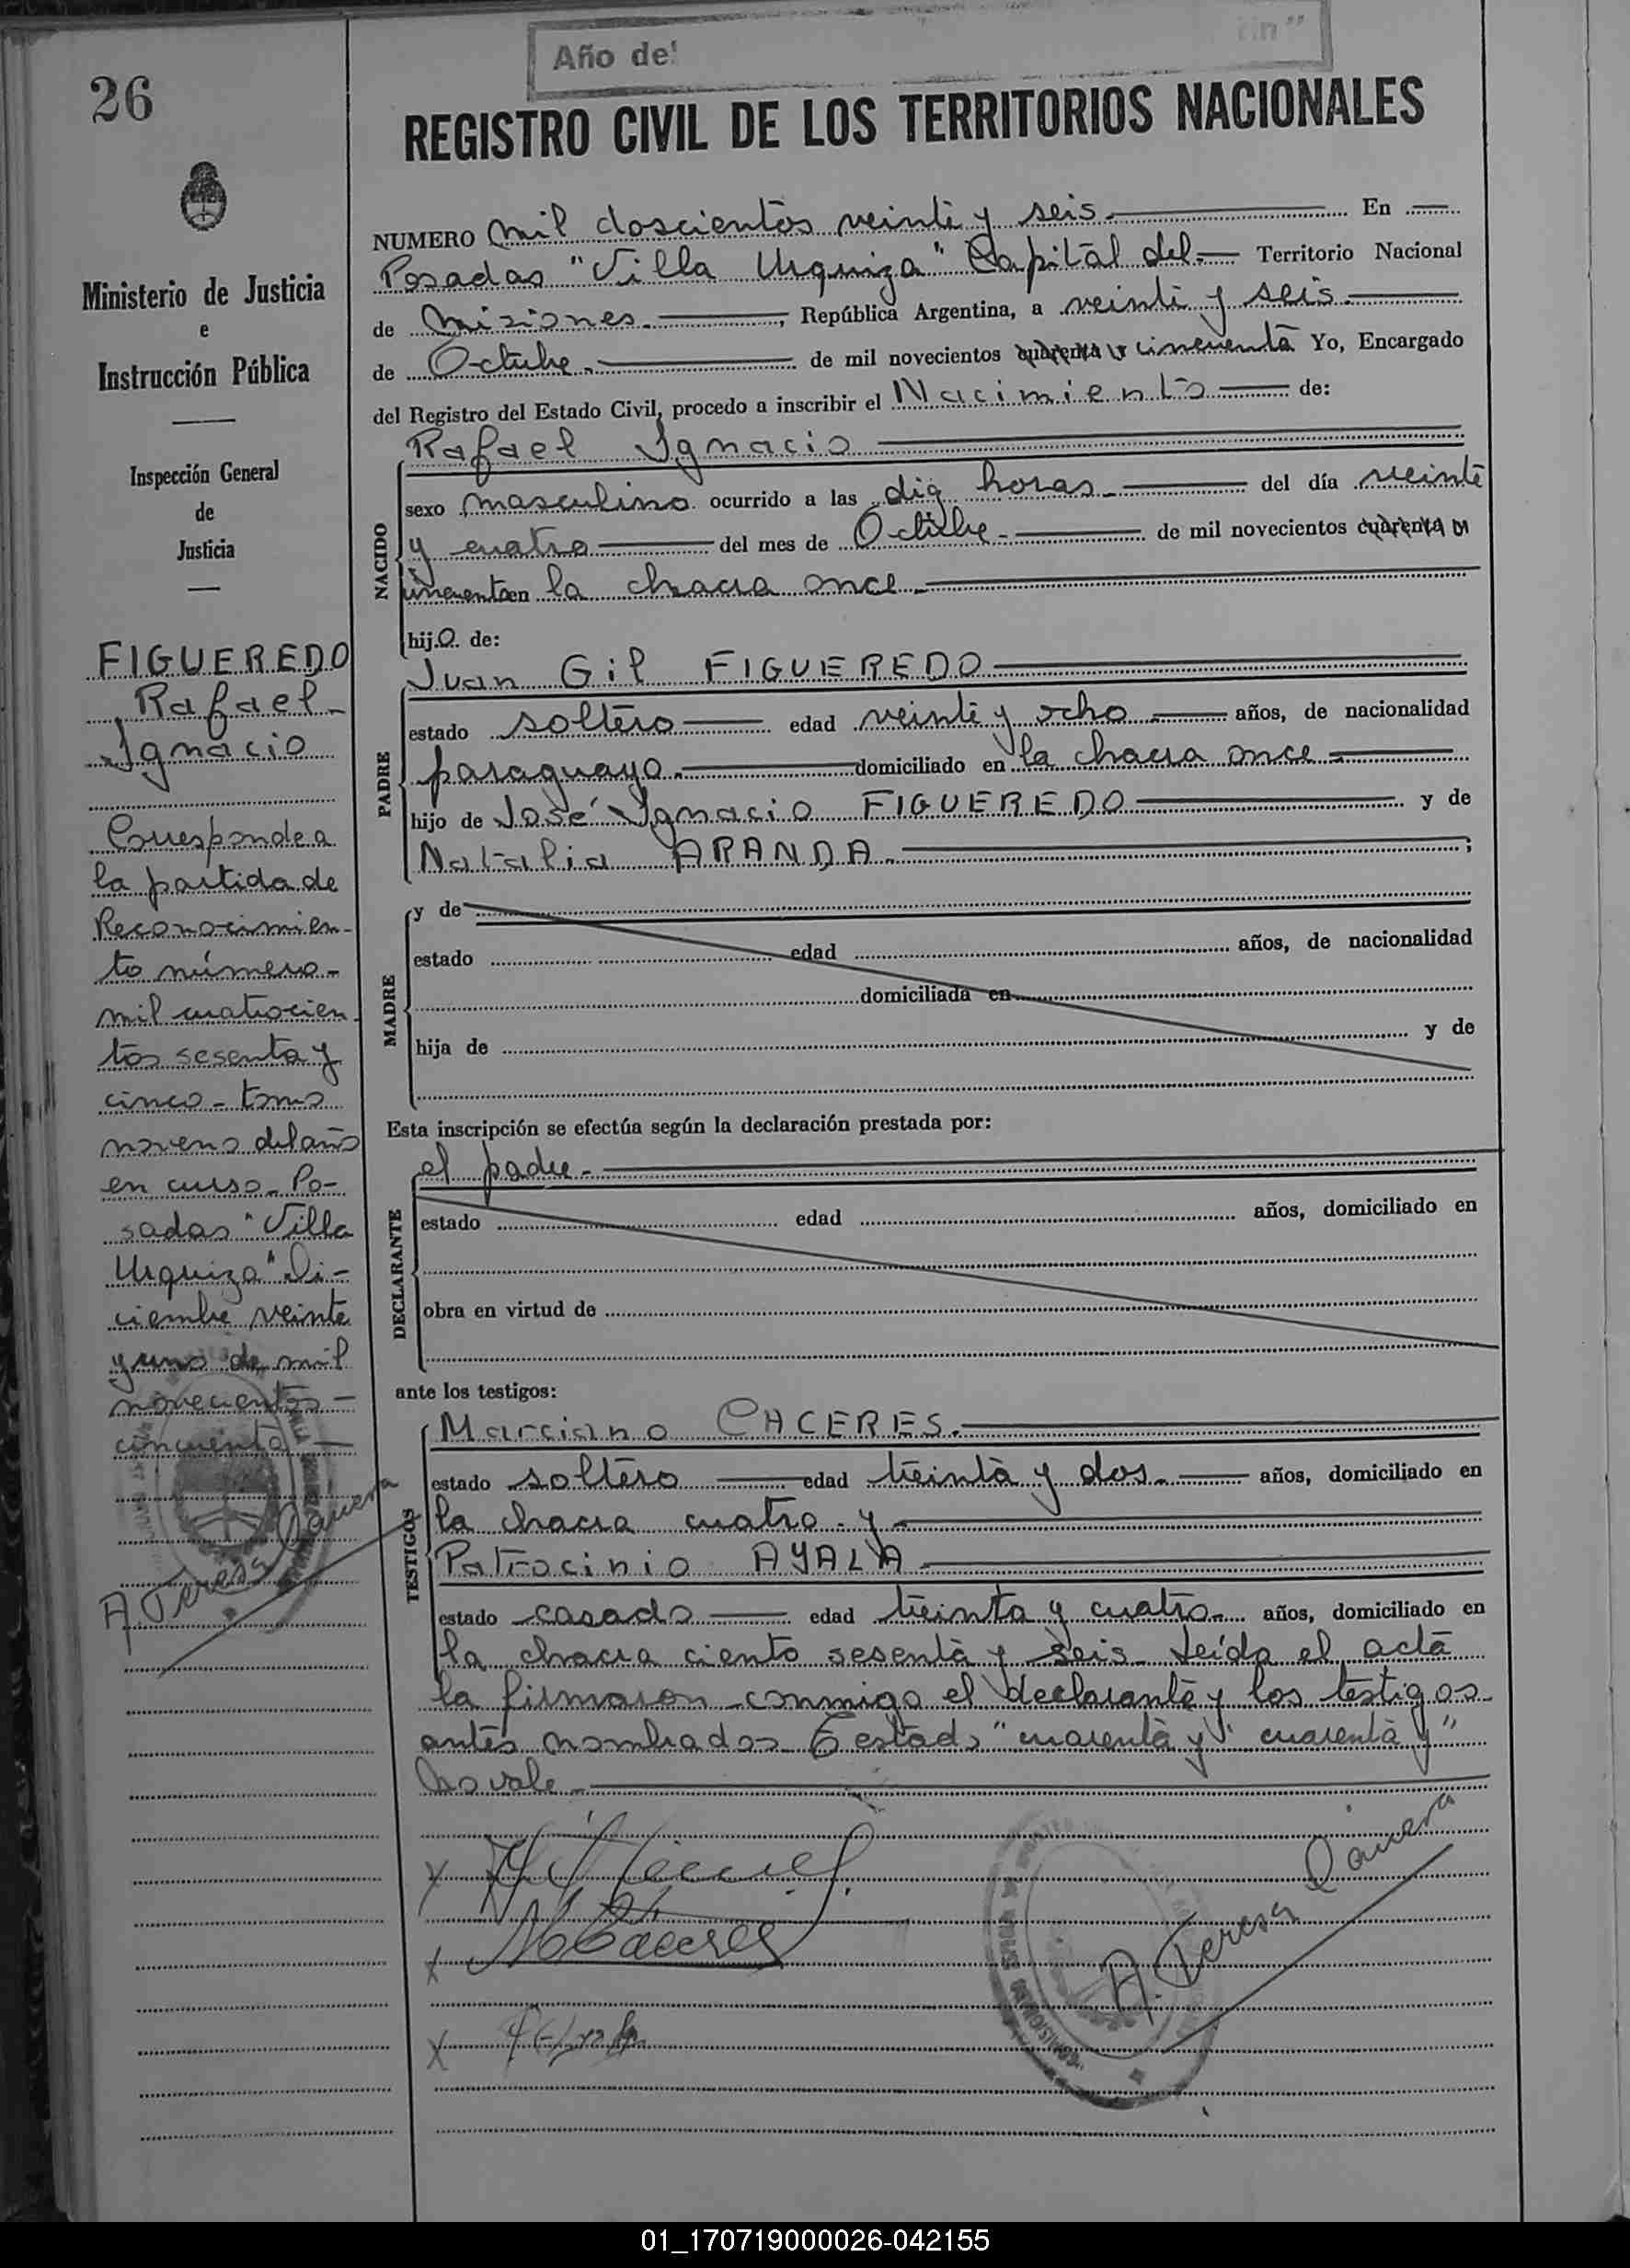 Año de
26
REGISTRO CIVIL DE LOS TERRITORIOS NACIONALES
Ministerio de Justicia
e
Instrucción Pública
Inspección General
de
Justicia
FIGUEREDO
Rafael
Ignacio
Corresponde a
la partida de
Reconocimien-
to número-
mil cuatrocien
tos sesenta y
cinco - tomo
noveno del año
en curso - Po-
sadas "Villa
Urquiza" Di-
ciembre veinte
y uno de mil
novecientos -
cincuenta -
A. Teresa
NUMERO mil doscientos veinte y seis. En
Posadas "Villa Urquiza" Capital del Territorio Nacional
de Misiones. , República Argentina, a veinte y seis.
de Octubre. de mil novecientos cuarenta y cincuenta Yo, Encargado
del Registro del Estado Civil, procedo a inscribir el Nacimiento de:
Rafael Ignacio
NACIDO
sexo masculino ocurrido a las diez horas. del día veinte
y cuatro del mes de Octubre. de mil novecientos cuarenta y
cincuenta en la chacra once.
hijo de:
Juan Gil FIGUEREDO
PADRE
estado soltero edad veinte y ocho años, de nacionalidad
paraguayo. domiciliado en la chacra once
hijo de José Ignacio FIGUEREDO y de
Natalia ARANDA. ;
MADRE
y de
estado edad años, de nacionalidad
domiciliada en
hija de y de
Esta inscripción se efectúa según la declaración prestada por:
el padre.
DECLARANTE
estado edad años, domiciliado en
obra en virtud de
ante los testigos:
TESTIGOS
Marciano CACERES.
estado soltero edad treinta y dos. años, domiciliado en
la chacra cuatro y
Patrocinio AYALA
estado casado edad treinta y cuatro años, domiciliado en
la chacra ciento sesenta y seis. Leída el acta
la firmaron conmigo el declarante y los testigos
antes nombrados. Testado "cuarenta y" cuarenta y"
No vale.
M Caceres
A. Teresa
01_170719000026-042155